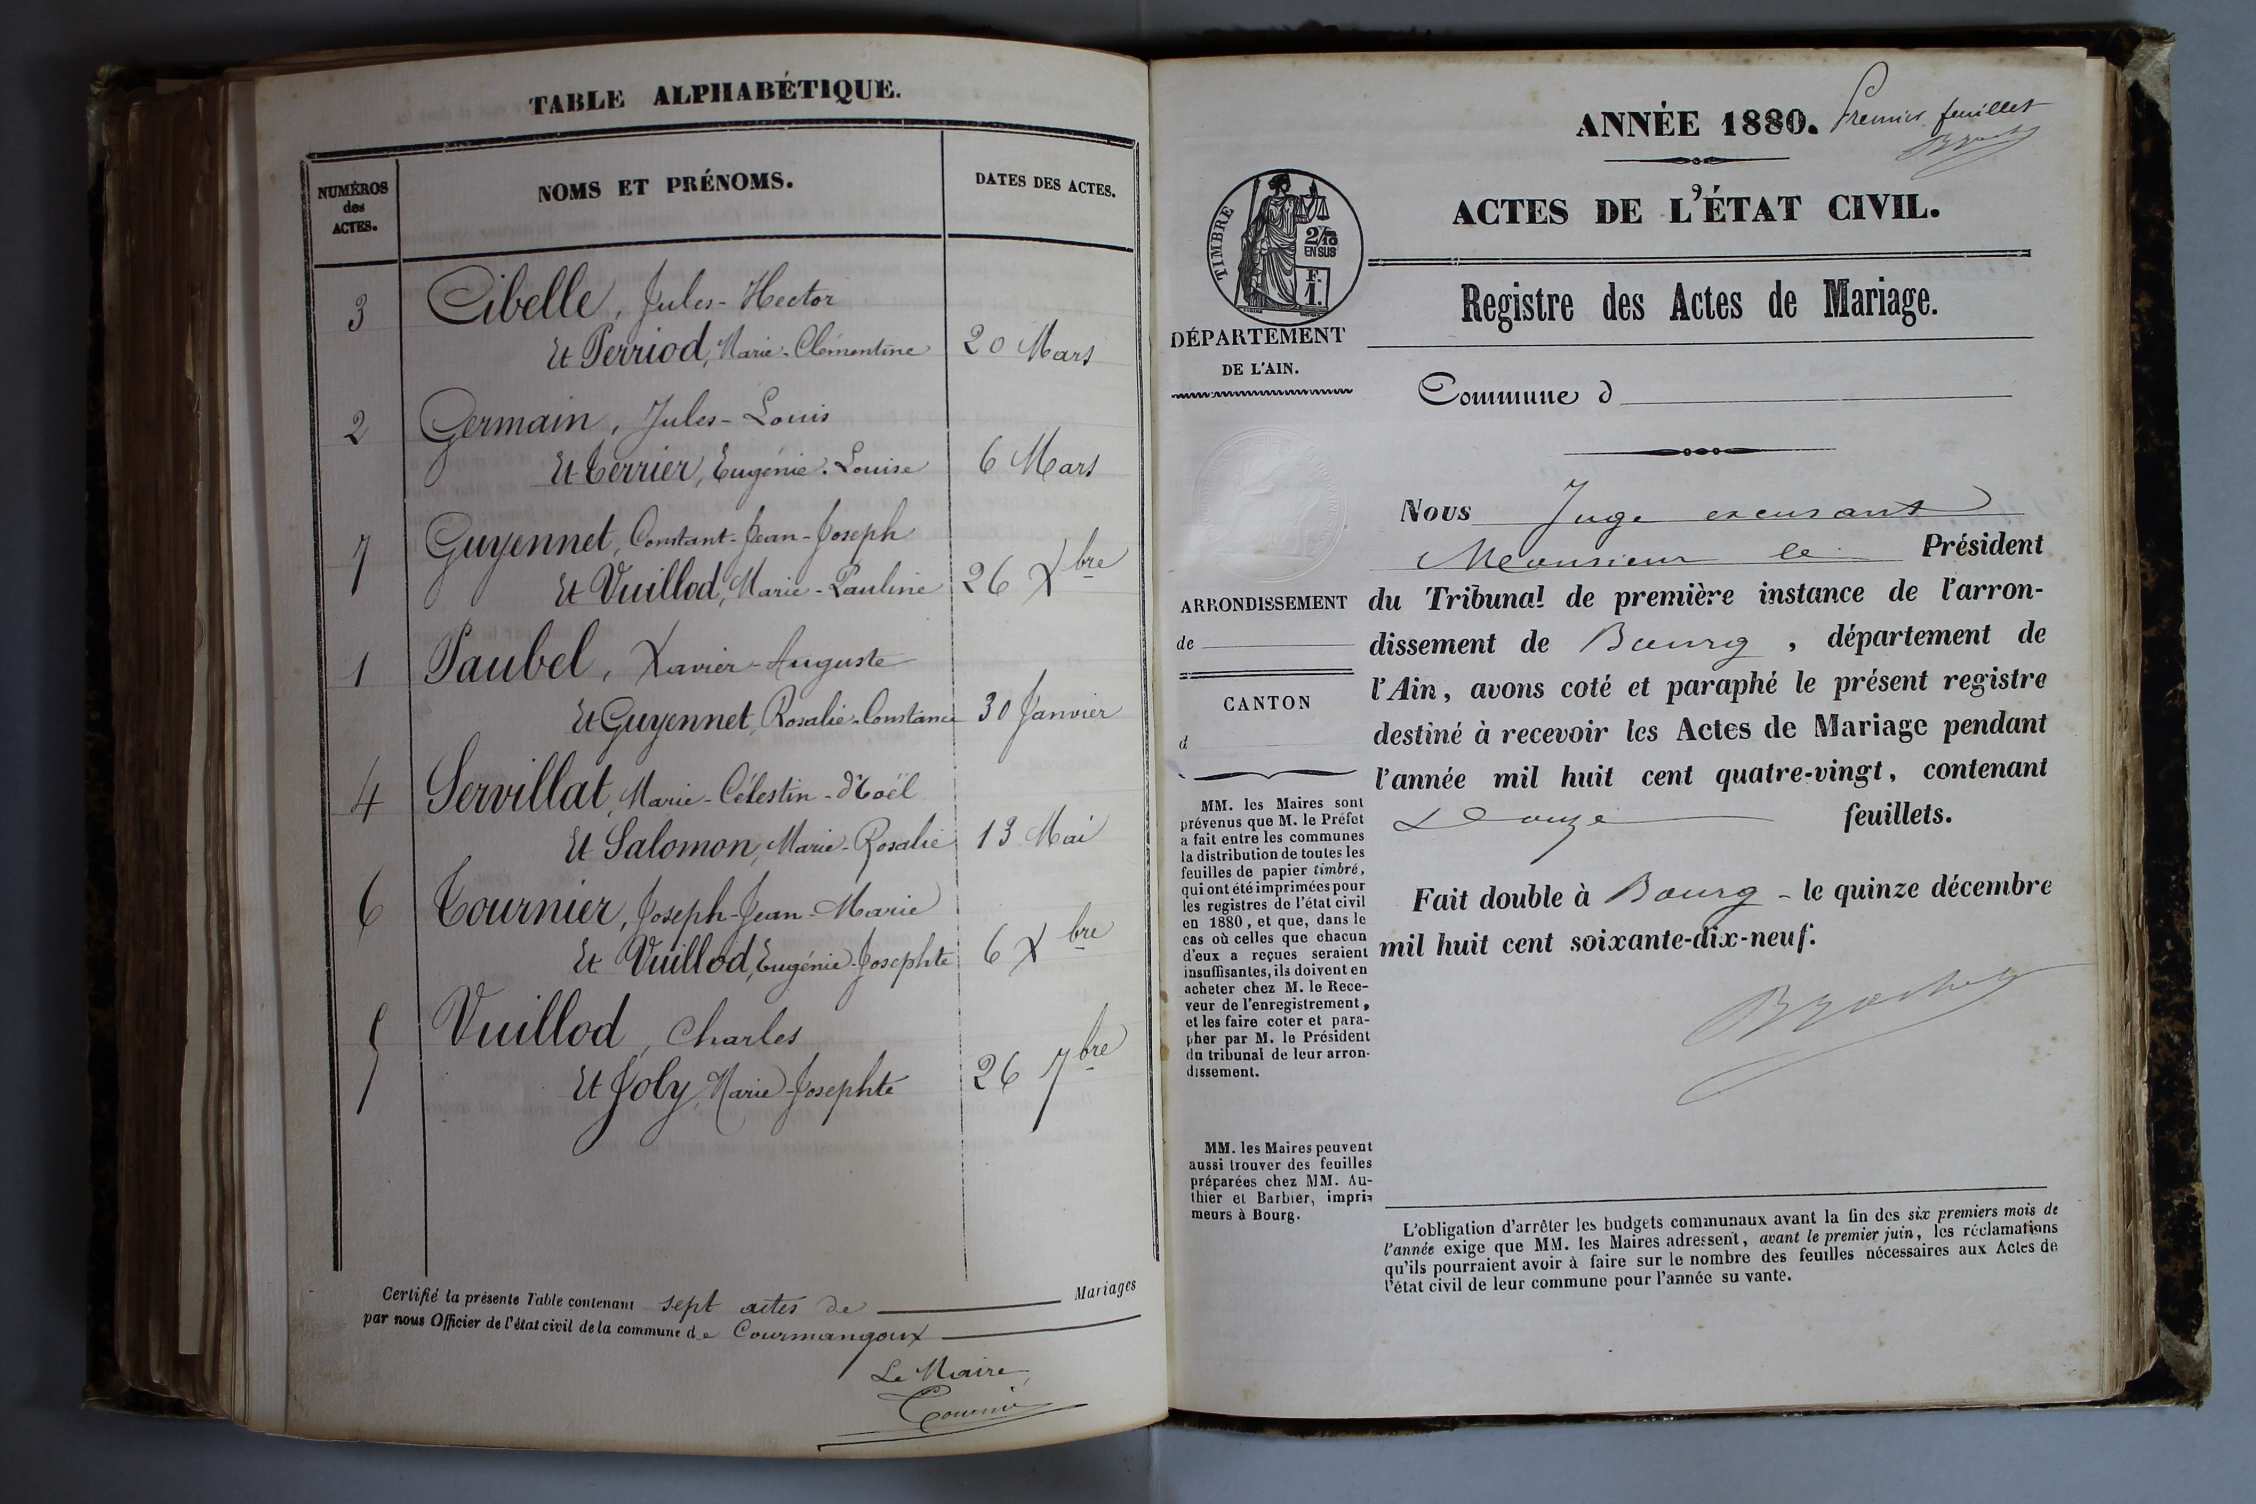 TABLE ALPHABÉTIQUE.
NUMÉROS
des
ACTES.
NOMS ET PRÉNOMS.
DATES DES ACTES.
3 Cibelle, Jules-Hector
Et Perriod, Marie-Clémentine 20 Mars
2 Germain, Jules-Louis
Et Terrier, Eugénie-Louise 6 Mars
7 Guyennet, Constant-Jean-Joseph
Et Vuillod, Marie-Pauline 26 Xbre
1 Paubel, Xavier-Auguste
Et Guyennet, Rosalie-Constance 30 Janvier
4 Servillat, Marie-Célestin-Noël
Et Salomon, Marie-Rosalie 13 Mai
6 Tournier, Joseph-Jean-Marie
Et Vuillod, Eugénie-Josephte 6 Xbre
5 Vuillod, Charles
Et Joly, Marie-Josephte 26 7bre
Certifié la présente Table contenant sept actes de Mariages
par nous Officier de l'état civil de la commune de Courmangoux
Le Maire,
Tournier
ANNÉE 1880.
Premier feuillet
ACTES DE L'ÉTAT CIVIL.
TIMBRE
2/10
EN SUS
F.
1.
Registre des Actes de Mariage.
DÉPARTEMENT
DE L'AIN.
Commune d
ARRONDISSEMENT
de
CANTON
d
MM. les Maires sont
prévenus que M. le Préfet
a fait entre les communes
la distribution de toutes les
feuilles de papier timbré,
qui ont été imprimées pour
les registres de l'état civil
en 1880, et que, dans le
cas où celles que chacun
d'eux a reçues seraient
insuffisantes, ils doivent en
acheter chez M. le Rece-
veur de l'enregistrement,
et les faire coter et para-
pher par M. le Président
du tribunal de leur arron-
dissement.
MM. les Maires peuvent
aussi trouver des feuilles
préparées chez MM. Au-
thier et Barbier, impri-
meurs à Bourg.
Nous Juge excusant
Monsieur le Président
du Tribunal de première instance de l'arron-
dissement de Bourg, département de
l'Ain, avons coté et paraphé le présent registre
destiné à recevoir les Actes de Mariage pendant
l'année mil huit cent quatre-vingt, contenant
Douze feuillets.
Fait double à Bourg - le quinze décembre
mil huit cent soixante-dix-neuf.
L'obligation d'arrêter les budgets communaux avant la fin des six premiers mois de
l'année exige que MM. les Maires adressent, avant le premier juin, les réclamations
qu'ils pourraient avoir à faire sur le nombre des feuilles nécessaires aux Actes de
l'état civil de leur commune pour l'année su vante.